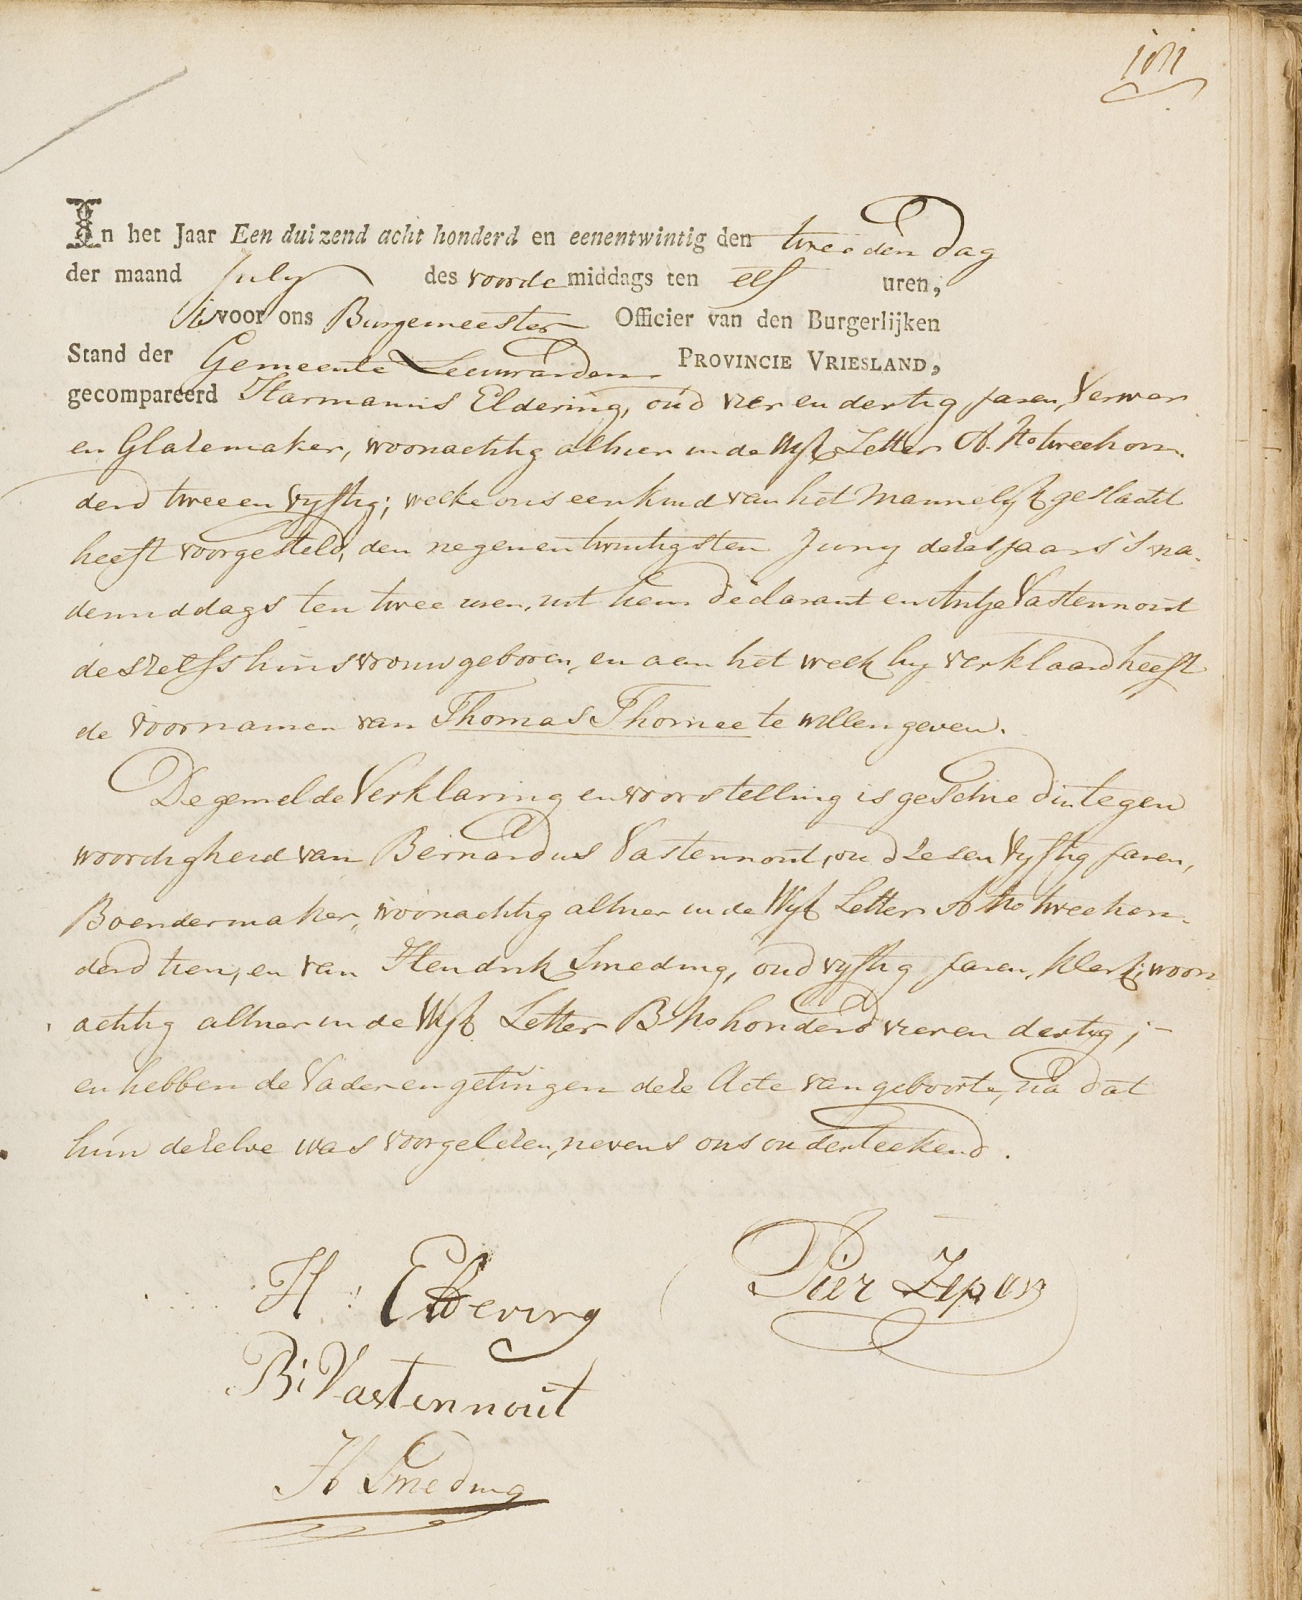 101
In het Jaar Een duizend acht honderd en eenentwintig den tweeden dag
der maand July des voorde middags ten elf uren,
is voor ons Burgemeester Officier van den Burgerlijken
Stand der Gemeente Leeuwarden PROVINCIE VRIESLAND,
gecompareerd Harmannus Eldering, oud vier en dertig jaren, Verwer
en Glazemaker, woonachtig alhier in de Wyk Letter A. No tweehon-
derd twee en vyftig; welke ons een kind van het mannelyk geslacht
heeft voorgesteld, den negenentwintigsten Juny dezes jaars 's na-
demiddags ten twee uren, uit hem declarant en Antje Vastennout
deszelfs huisvrouw geboren, en aan het welk hy verklaard heeft
de voornamen van Thomas Thomee te willen geven.
De gemelde Verklaring en voorstelling is geschied in tegen
woordigheid van Bernardus Vastennout, oud zesen vyftig jaren,
Boendermaker, woonachtig alhier in de Wyk Letter A No tweehon-
derd tien, en van Hendrik Smeding, oud vyftig jaren, klerk, woon
achtig alhier in de Wyk Letter B No honderd vier en dertig;
en hebben de Vader en getuigen deze Acte van geboorte, na dat
hun dezelve was voorgelezen, nevens ons onderteekend.
H: Eldering Pier Zepon
B: Vastennout
H Smeding